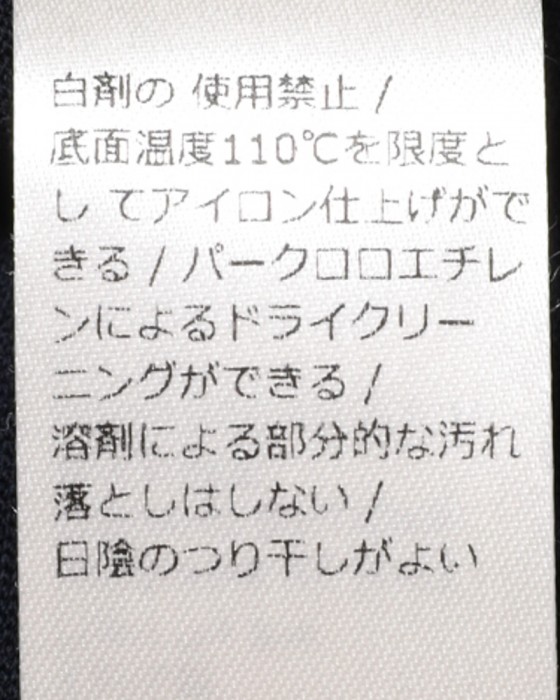 白剤の 使用禁止 /
底面温度110℃を限度と
し てアイロン仕上げがで
きる / パークロロエチレ
ンによるドライクリー
ニングができる /
溶剤による部分的な汚れ
落としはしない /
日陰のつり干しがよい